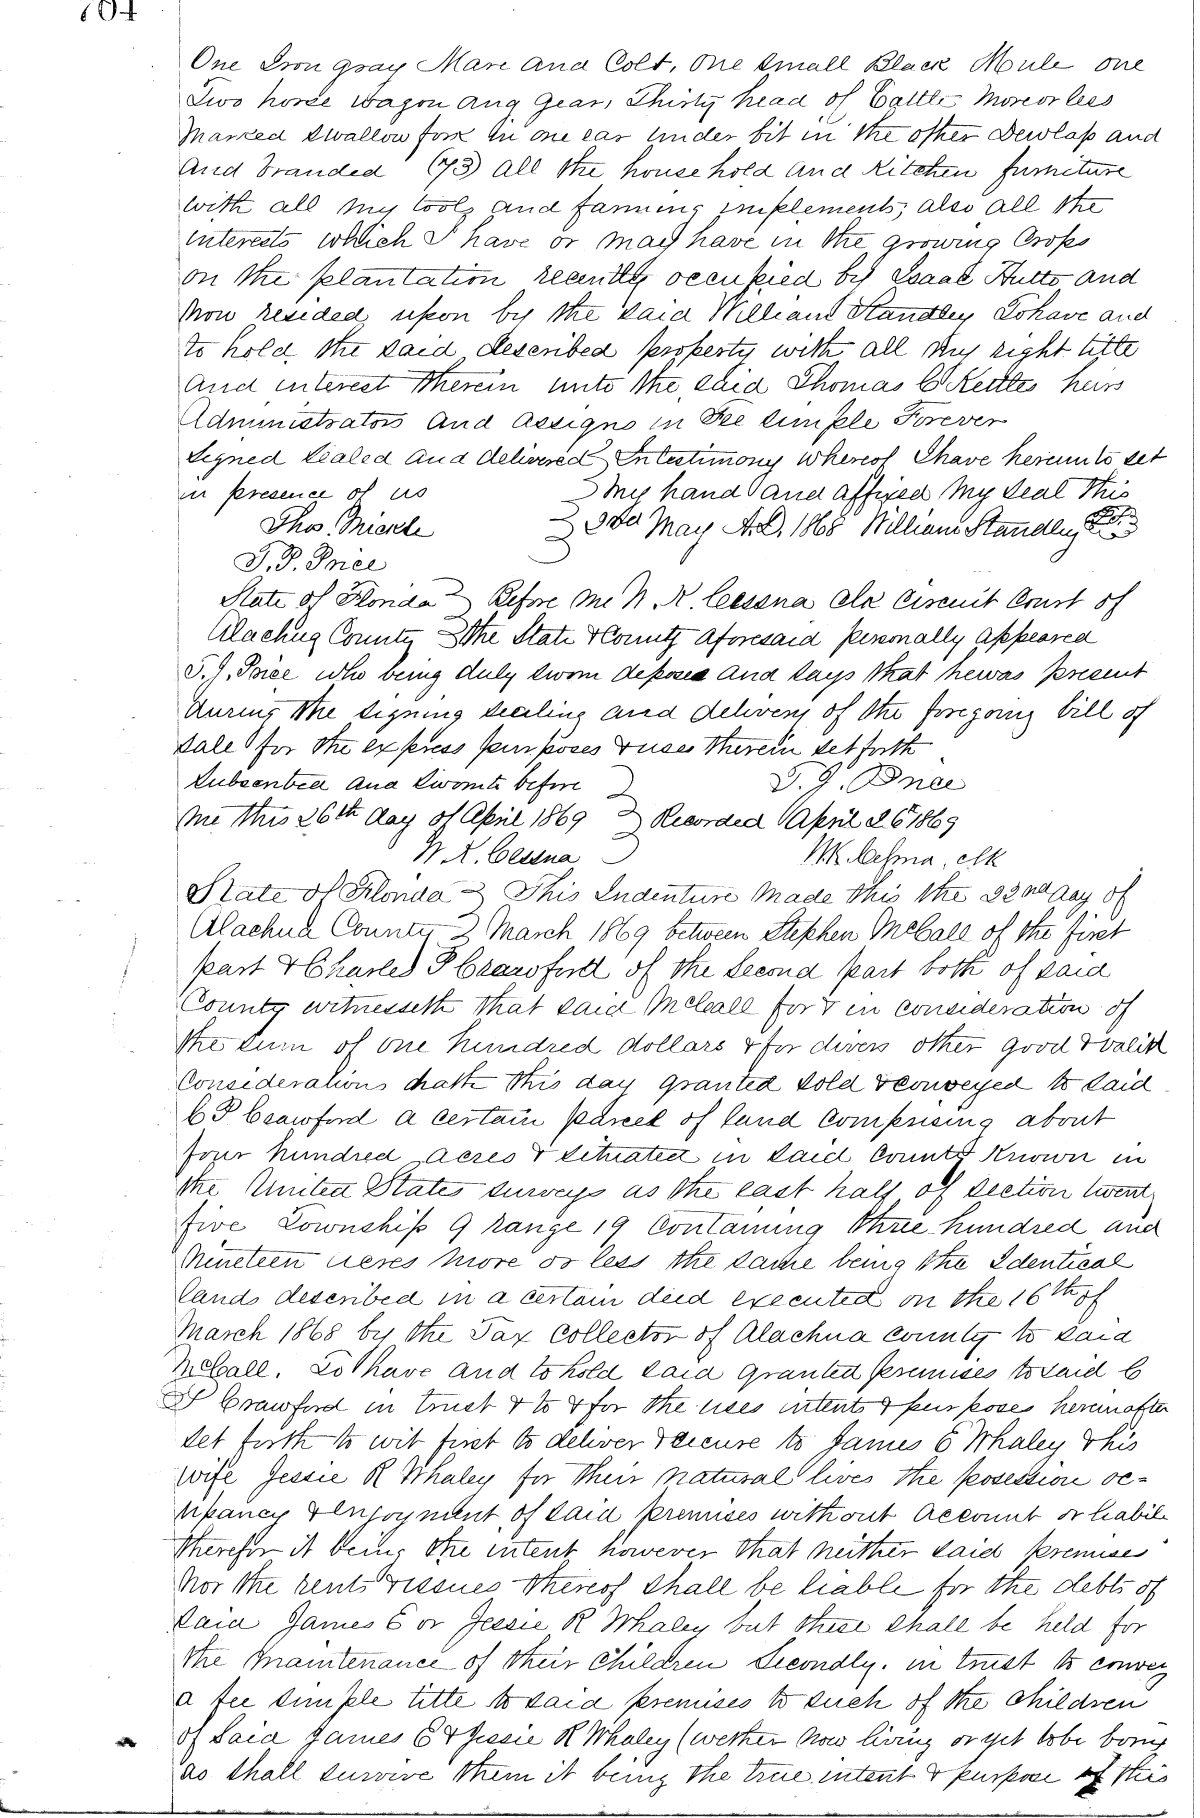 704
One Iron gray Mare and Colt, One Small Black Mule one
Two horse wagon ang Gear, Thirty head of Cattle More or less
Marked swallow fork in one ear under bit in the other Dewlap and
and branded (73) all the household and Kitchen furniture
with all my tools and farming implements, also all the
interests which I have or may have in the growing Crops
on the plantation recently occupied by Isaac Hutto and
now resided upon by the said William Standley To have and
to hold the said described property with all my right title
and interest therein unto the said Thomas C Kettles heirs
Administrators and assigns in Fee simple Forever
Signed Sealed and delivered In testimony whereof I have hereunto set
in presence of us my hand and affixed my seal this
Thos. Mickle 2nd May A.D. 1868 William Standley
T. P. Price
State of Florida Before me W. K. Cessna Clk Circuit Court of
Alachua County the State & County aforesaid personally appeared
T. J. Price who being duly sworn deposes and says that he was present
during the signing sealing and delivery of the foregoing bill of
sale for the express purposes & uses therein set forth
Subscribed and Sworn to before T. J. Price
me this 26th day of April 1869 Recorded April 26th 1869
W. K. Cessna WK. Cessna, clk
State of Florida This Indenture Made this the 22nd day of
Alachua County March 1869 between Stephen McCall of the first
part & Charles P Crawford of the Second part both of said
County witnesseth that said McCall for & in consideration of
the sum of one hundred dollars & for divers other good & valid
Considerations hath this day granted sold & conveyed to said
C P Crawford a certain parcel of land comprising about
four hundred acres & situated in said County Known in
the United States surveys as the east half of section twenty
five Township 9 range 19 Containing three hundred and
Nineteen acres more or less the same being the Identical
lands described in a certain deed executed on the 16th of
March 1868 by the Tax Collector of Alachua County to said
McCall. To have and to hold said granted premises to said C
P Crawford in trust & to & for the uses intents & purposes hereinafter
set forth to wit first to deliver & secure to James E Whaley & his
wife Jessie R Whaley for their natural lives the posession oc=
upancy & enjoyment of said premises without account or liabili
therefor it being the intent however that neither said premises
nor the rents & issues thereof shall be liable for the debts of
said James E or Jessie R Whaley but these shall be held for
the maintenance of their Children Secondly. in trust to convey
a fee simple title to said premises to such of the children
of said James E & Jessie R Whaley (wether now living or yet to be born)
as shall survive them it being the true intent & purpose of this